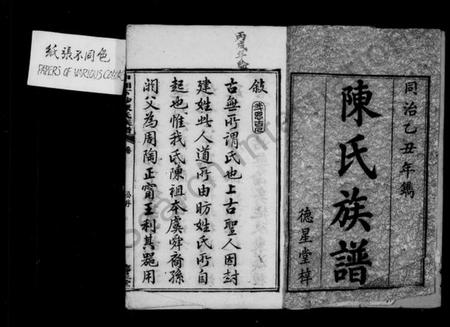 紙張不同色
PAPERS OF VARIOUS COLORS
同治乙丑年鐫
陳氏族譜
德星堂梓
敍
古無所謂氏也上古聖人因封
建姓此人道所由昉姓氏所自
起也惟我氏陳祖本虞舜裔孫
閼父為周陶正甯王利其器用